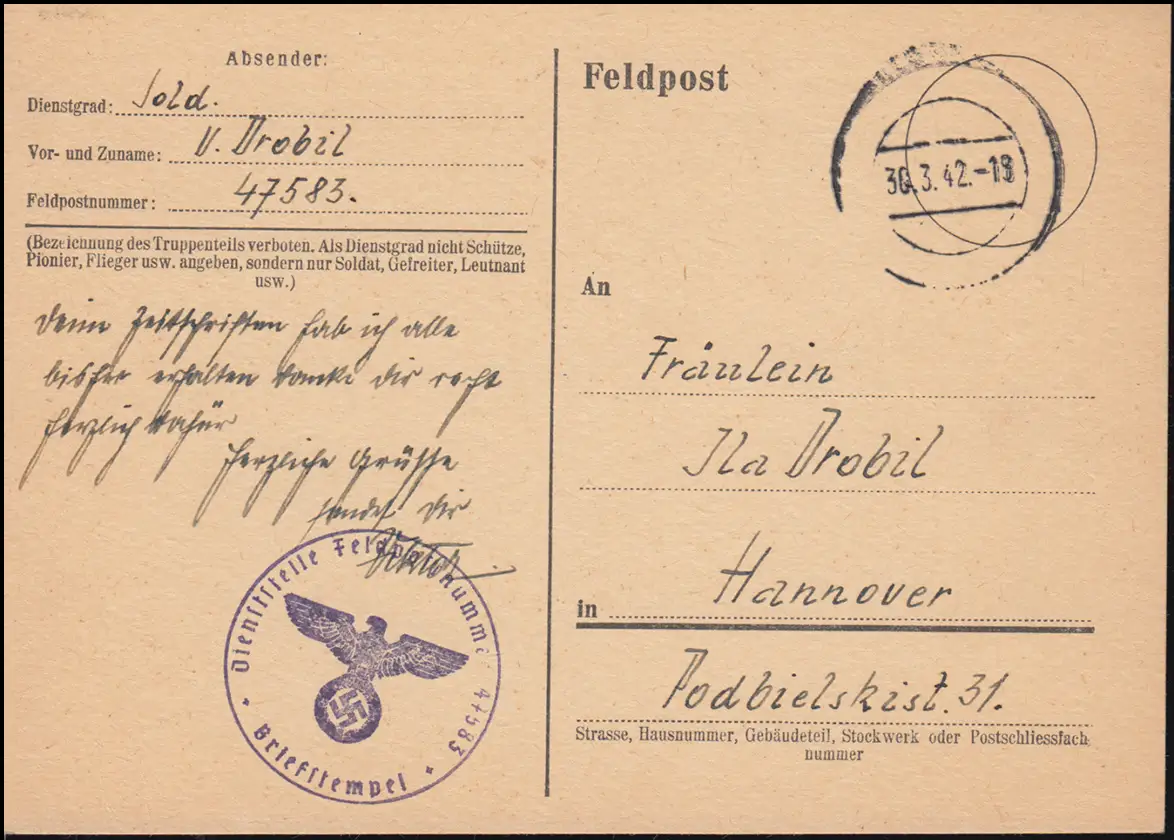 Absender:
Dienstgrad: Sold.
Vor- und Zuname: V. Drobil
Feldpostnummer: 47583.
(Bezeichnung des Truppenteils verboten. Als Dienstgrad nicht Schütze,
Pionier, Flieger usw. angeben, sondern nur Soldat, Gefreiter, Leutnant
usw.)
Deine Zeitschriften hab ich alle
bisher erhalten danke dir recht
herzlich dafür
herzliche Grüsse
sendet dir
Dienststelle Feldpostnummer 47583
Briefstempel
Feldpost
30.3.42.-18
An
Fräulein
Ila Drobil
in Hannover
Podbielskist. 31.
Strasse, Hausnummer, Gebäudeteil, Stockwerk oder Postschliessfach
nummer